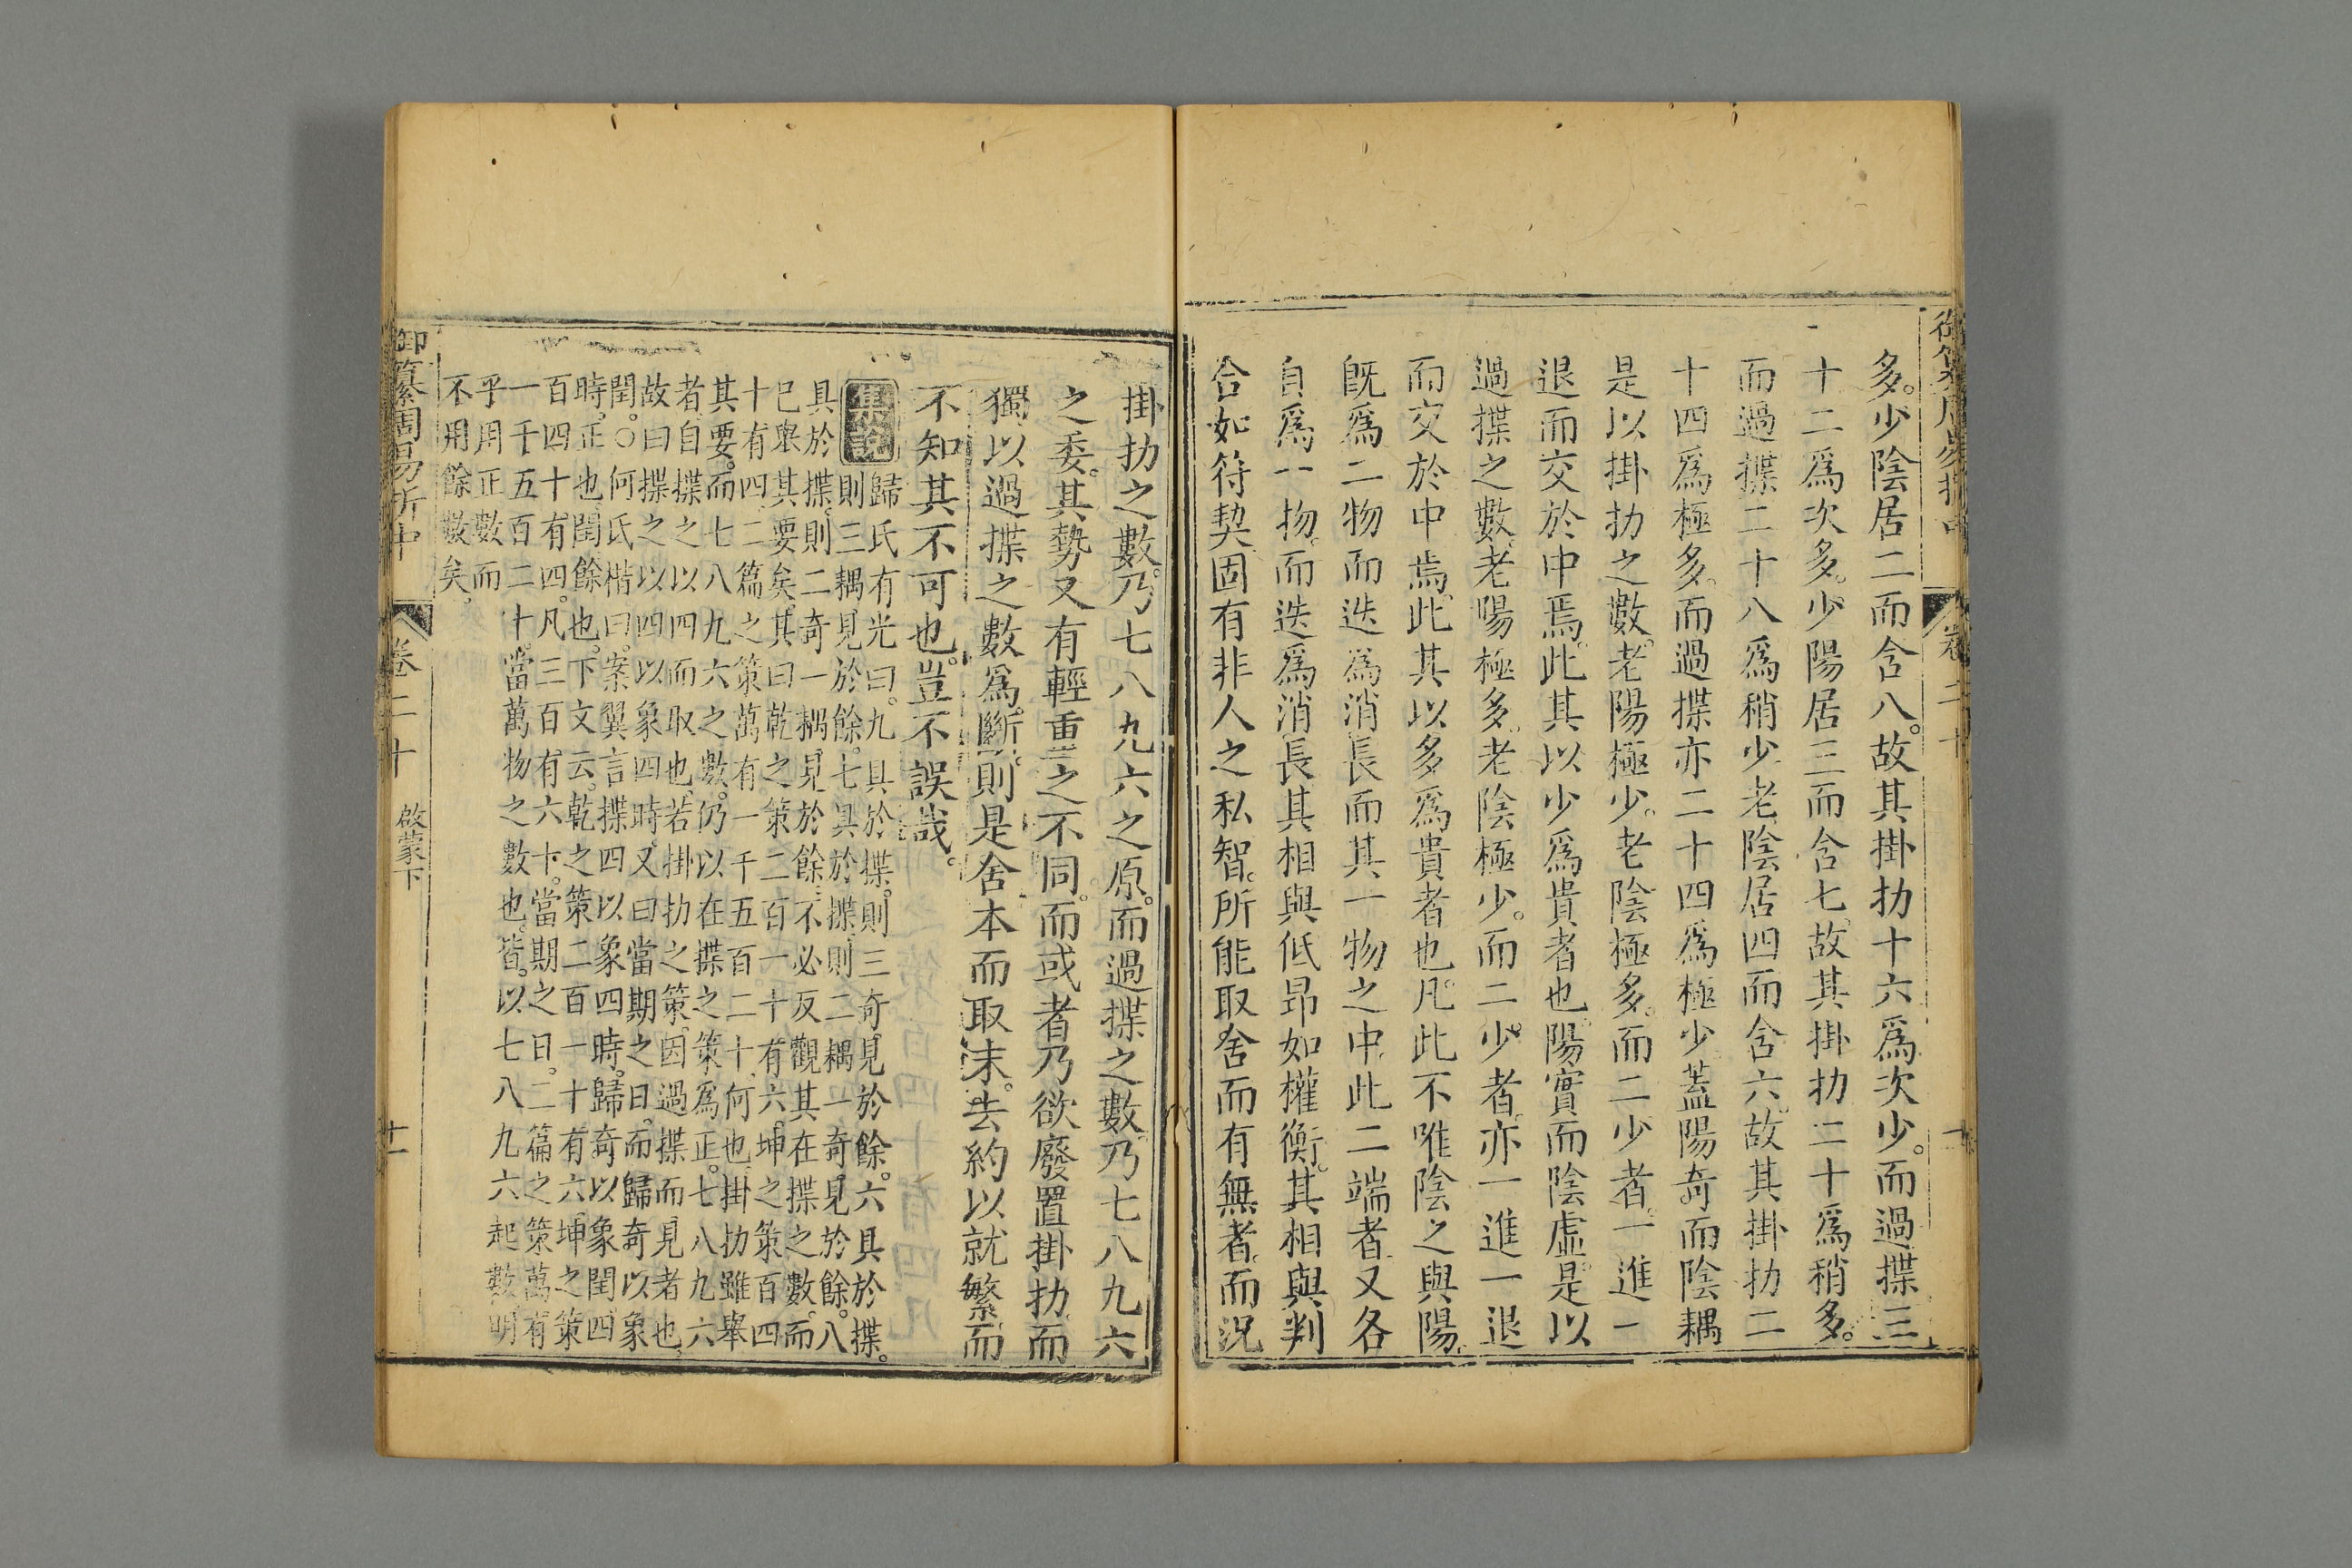 卷二十
多。少陰居二而含八。故其掛扐十六爲次少。而過揲三
十二爲次多。少陽居三而含七。故其掛扐二十爲稍多。
而過揲二十八爲稍少。老陰居四而含六。故其掛扐二
十四爲極多。而過揲亦二十四爲極少。蓋陽奇而陰耦
是以掛扐之數。老陽極少。老陰極多。而二少者。一進一
退而交於中焉。此其以少爲貴者也。陽實而陰虛。是以
過揲之數。老陽極多。老陰極少。而二少者。亦一進一退
而交於中焉。此其以多爲貴者也。凡此不唯陰之與陽。
既爲二物而迭爲消長而其一物之中。此二端者。又各
自爲一物。而迭爲消長其相與低昂如權衡。其相與判
合如符契。固有非人之私智。所能取舍而有無者。而況
掛扐之數。乃七八九六之原。而過揲之數。乃七八九六
之委。其勢又有輕重之不同。而或者乃欲廢置掛扐而
獨以過揲之數爲斷。則是舍本而取末。去約以就繁而
不知其不可也。豈不誤哉。
集說 歸氏有光曰。九具於揲。則三奇見於餘。六具於揲。
則三耦見於餘。七具於揲。則二耦一奇見於餘。八
具於揲。則二奇一耦。見於餘。不必反觀其在揲之數。而
已舉其要矣。其曰乾之策二百一十有六。坤之策百四
十有四。二篇之策萬有一千五百二十。何也。掛扐雖舉
其要。而七八九六之數。仍以在揲之策爲正。七八九六
者。自揲之以四而取也。若掛扐之策。因過揲而見者也。
故曰揲之以四以象四時。又曰當期之日。而歸奇以象
閏。○何氏楷曰。案翼言揲四以象四時。歸奇以象閏四
時。正也。閏餘也。下文云。乾之策二百一十有六。坤之策
百四十有四。凡三百有六十。當期之日。二篇之策萬有
一千五百二十。當萬物之數也。皆。以七八九六起數明
乎用正數而
不用餘數矣。
御纂周易折中 卷二十 啟蒙下 十一